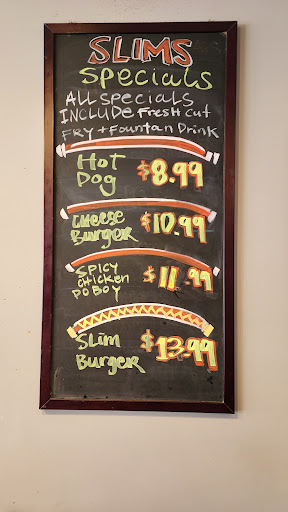 SLIMS
Specials
ALL Specials
INCLUDE Fresh cut
FRY + Fountan Drink
Hot
Dog
$8.99
Cheese
Burger
$10.99
SPICY
CHICKEN
PO BOY
$11.99
Slim
Burger
$13.99